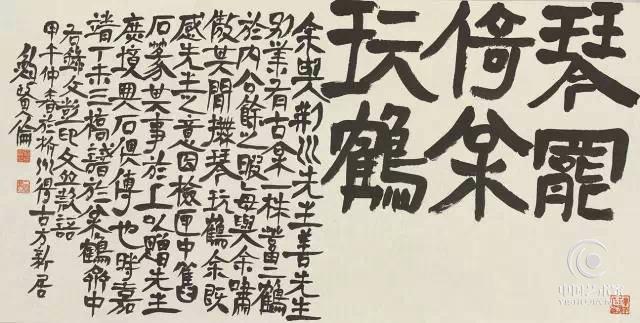 琴罷
倚枀
玩鶴
余與荆川先生善先生
別業有古枀一株畜二鶴
於内公餘之暇每與余嘯
傲其間撫琴玩鶴余既
感先生之意因檢匣中舊
石篆其事於上以贈先生
庶境與石俱傳也時嘉
靖丁未三橋識於枀鶴齋中
右錄文彭印文並款語
甲午仲春於杭州得古方新居
鮑賢倫
中国艺术家